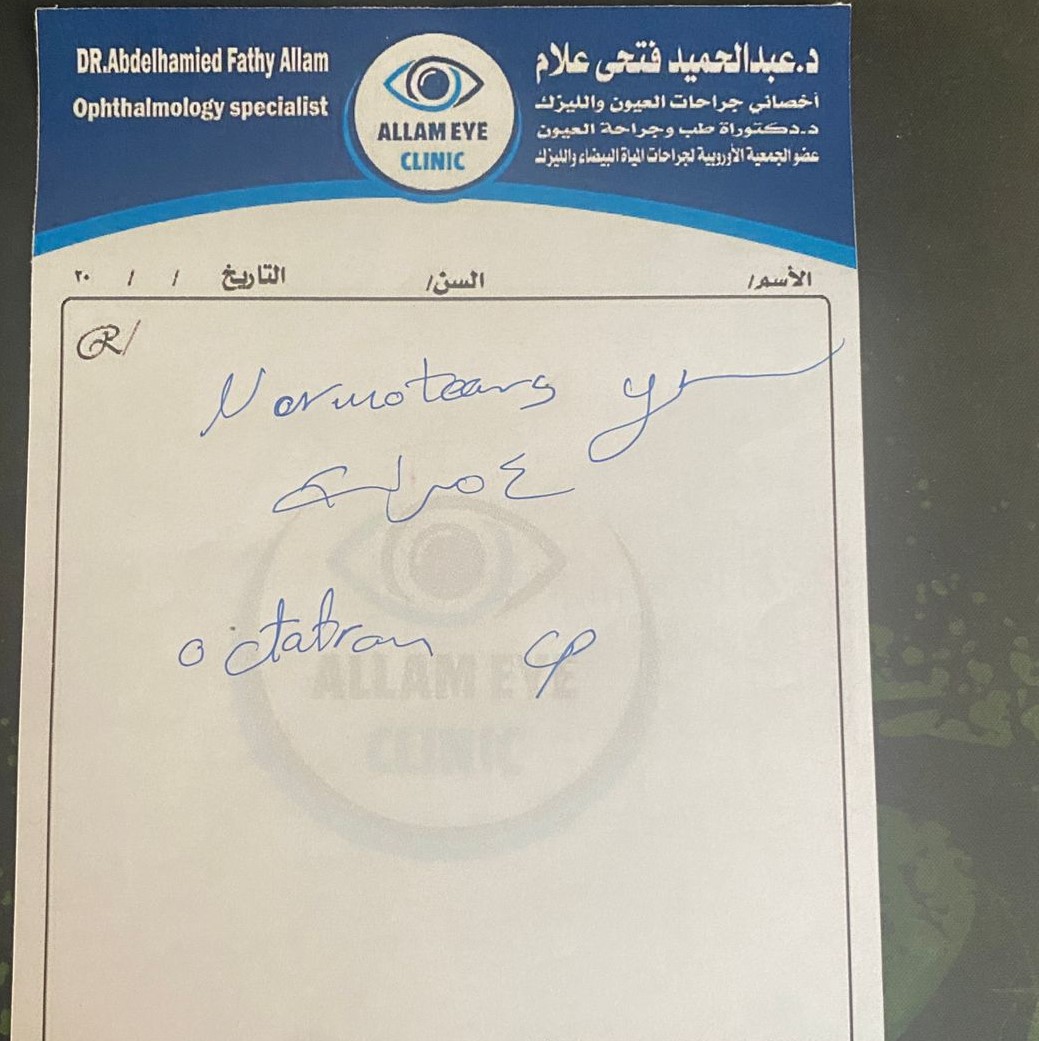 DR.Abdelhamied Fathy Allam
Ophthalmology specialist
ALLAM EYE
CLINIC
د.عبدالحميد فتحى علام
أخصائي جراحات العيون والليزك
د.دكتوراة طب وجراحة العيون
عضو الجمعية الأوروبية لجراحات المياة البيضاء والليزك
الأسم/ السن/ التاريخ / / ٢٠
R/
Normotears
octatron cp
ALLAM EYE
CLINIC